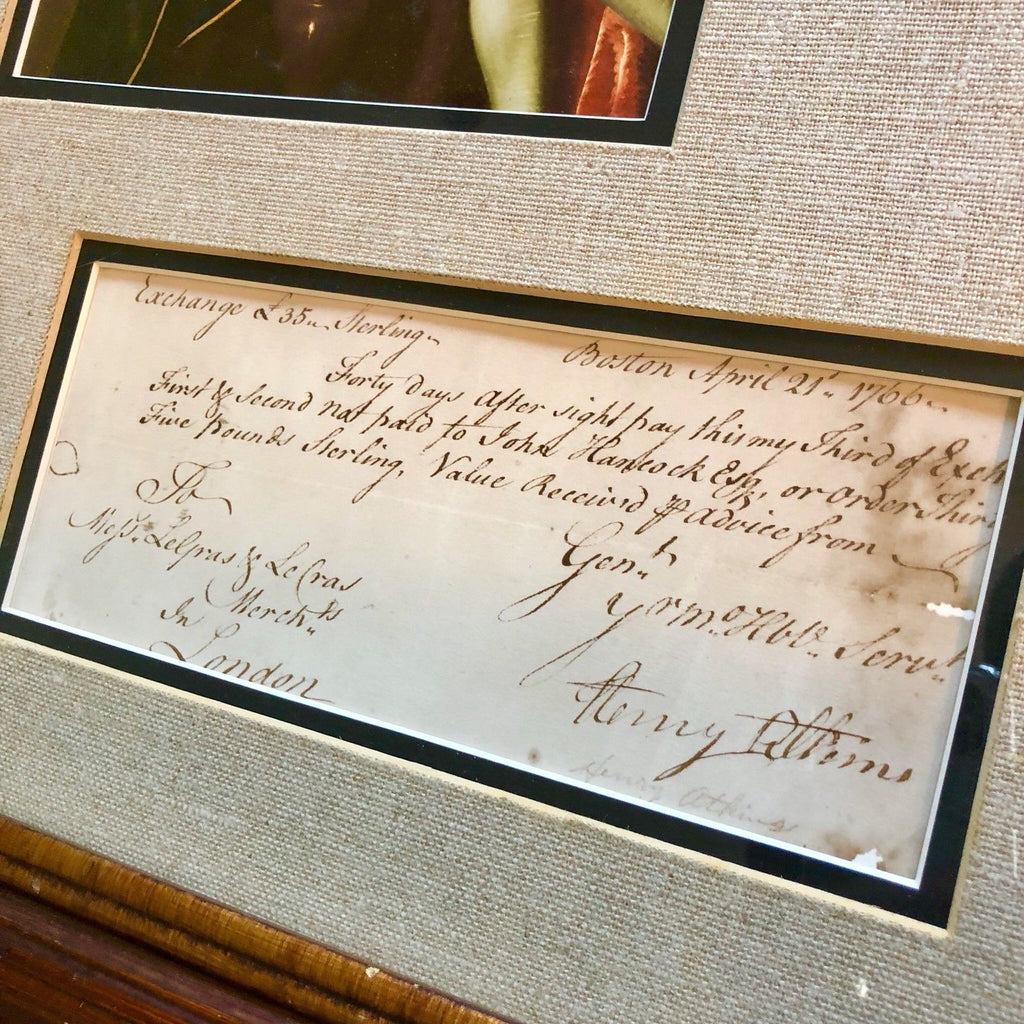 Exchange £35 „ Sterling
Boston April 21st. 1766
Forty days after sight pay this my Third of Exch
First & Second not paid to John Hancock Esq, or Order Thirty
Five Pounds Sterling, Value Received & advice from
To
Messrs. LeGras & LeCras
Mercht.s
In
London
Gent.
Yr mo. Hble. Servt
Henry Atkins
Henry Atkins